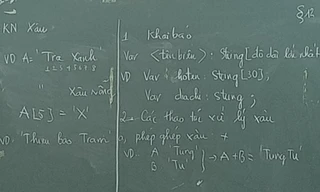 §12
KN Xâu
VD A = 'Tra Xanh'
1 2 3 4 5 6 7 8
'' 'Xâu rỗng
A[5] = 'X'
VD: 'Thieu bao Tram'
1 Khai báo
Var <tên biến>: String[độ dài lớn nhất
VD Var hoten: String[30];
Var diachi: string;
2- Các thao tác xử lý xâu
a, phép ghép xâu: +
VD: A 'Tung'
B 'Tu' } → A + B = 'Tung Tu'